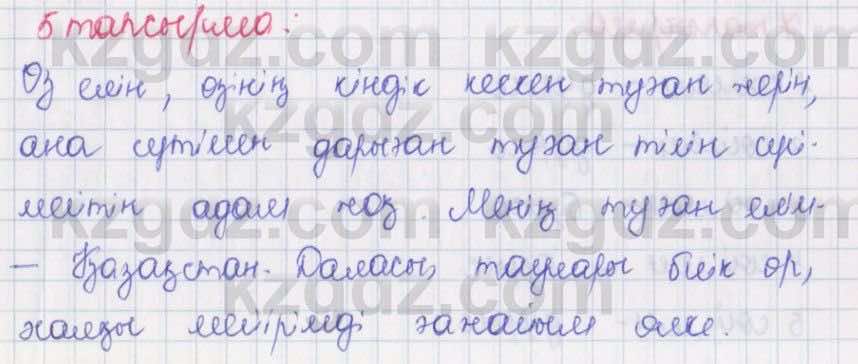 5 тапсырма:
Өз елін, өзінің кіндік кескен туған жерін,
ана сүтімен дарыған туған тілін сүй-
мейтін адам жоқ. Менің туған елім-
– Қазақстан. Даласы, таулары биік өр,
халқы мейірімді ғажайып өлке.
kzgdz.com